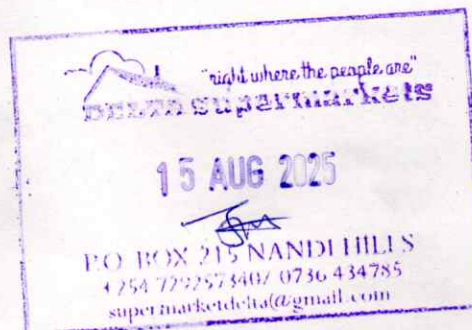 "right where the people are"
DELTA supermarkets
15 AUG 2025
P.O BOX 215 NANDI HILLS
+254 729257340/ 0736 434785
supermarketdelta@gmail.com